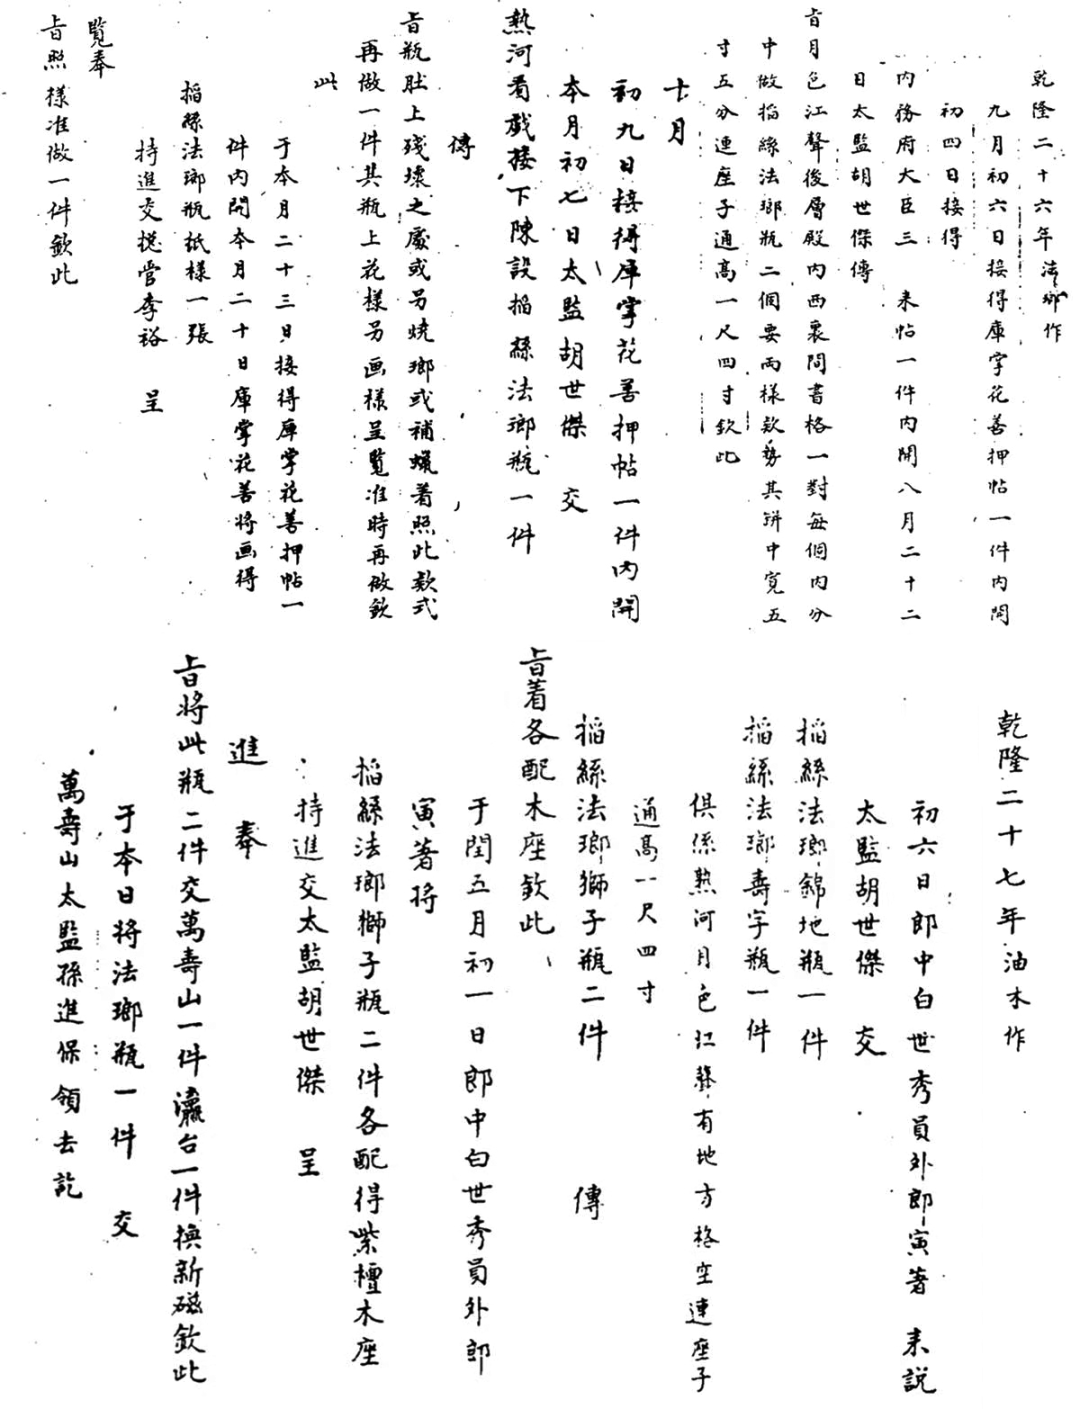 乾隆二十六年法瑯作
九月初六日接得庫掌花善押帖一件內開
初四日接得
內務府大臣三 來帖一件內開八月二十二
日太監胡世傑傳
旨月色江聲後層殿內西裏間書格一對每個內分
中做掐絲法瑯瓶二個要兩樣款勢其餅中寬五
寸五分連座子通高一尺四寸欽此
十月
初九日接得庫掌花善押帖一件內開
本月初七日太監胡世傑 交
熱河看戲接下陳設掐絲法瑯瓶一件
傳
旨瓶肚上殘壞之處或另燒瑯或補蠟著照此款式
再做一件其瓶上花樣另画樣呈覽准時再做欽
此
于本月二十三日接得庫掌花善押帖一
件內開本月二十日庫掌花善將画得
掐絲法瑯瓶紙樣一張
持進交總管李裕 呈
覽奉
旨照樣准做一件欽此
乾隆二十七年油木作
初六日郎中白世秀員外郎寅著 来説
太監胡世傑 交
掐絲法瑯錦地瓶一件
掐絲法瑯壽字瓶一件
俱係熱河月色江聲有地方格空連座子
通高一尺四寸
掐絲法瑯獅子瓶二件 傳
旨着各配木座欽此
于閏五月初一日郎中白世秀員外郎
寅著將
掐絲法瑯獅子瓶二件各配得紫檀木座
持進交太監胡世傑 呈
進 奉
旨將此瓶二件交萬壽山一件瀛台一件換新磁欽此
于本日將法瑯瓶一件 交
萬壽山太監孫進保領去訖